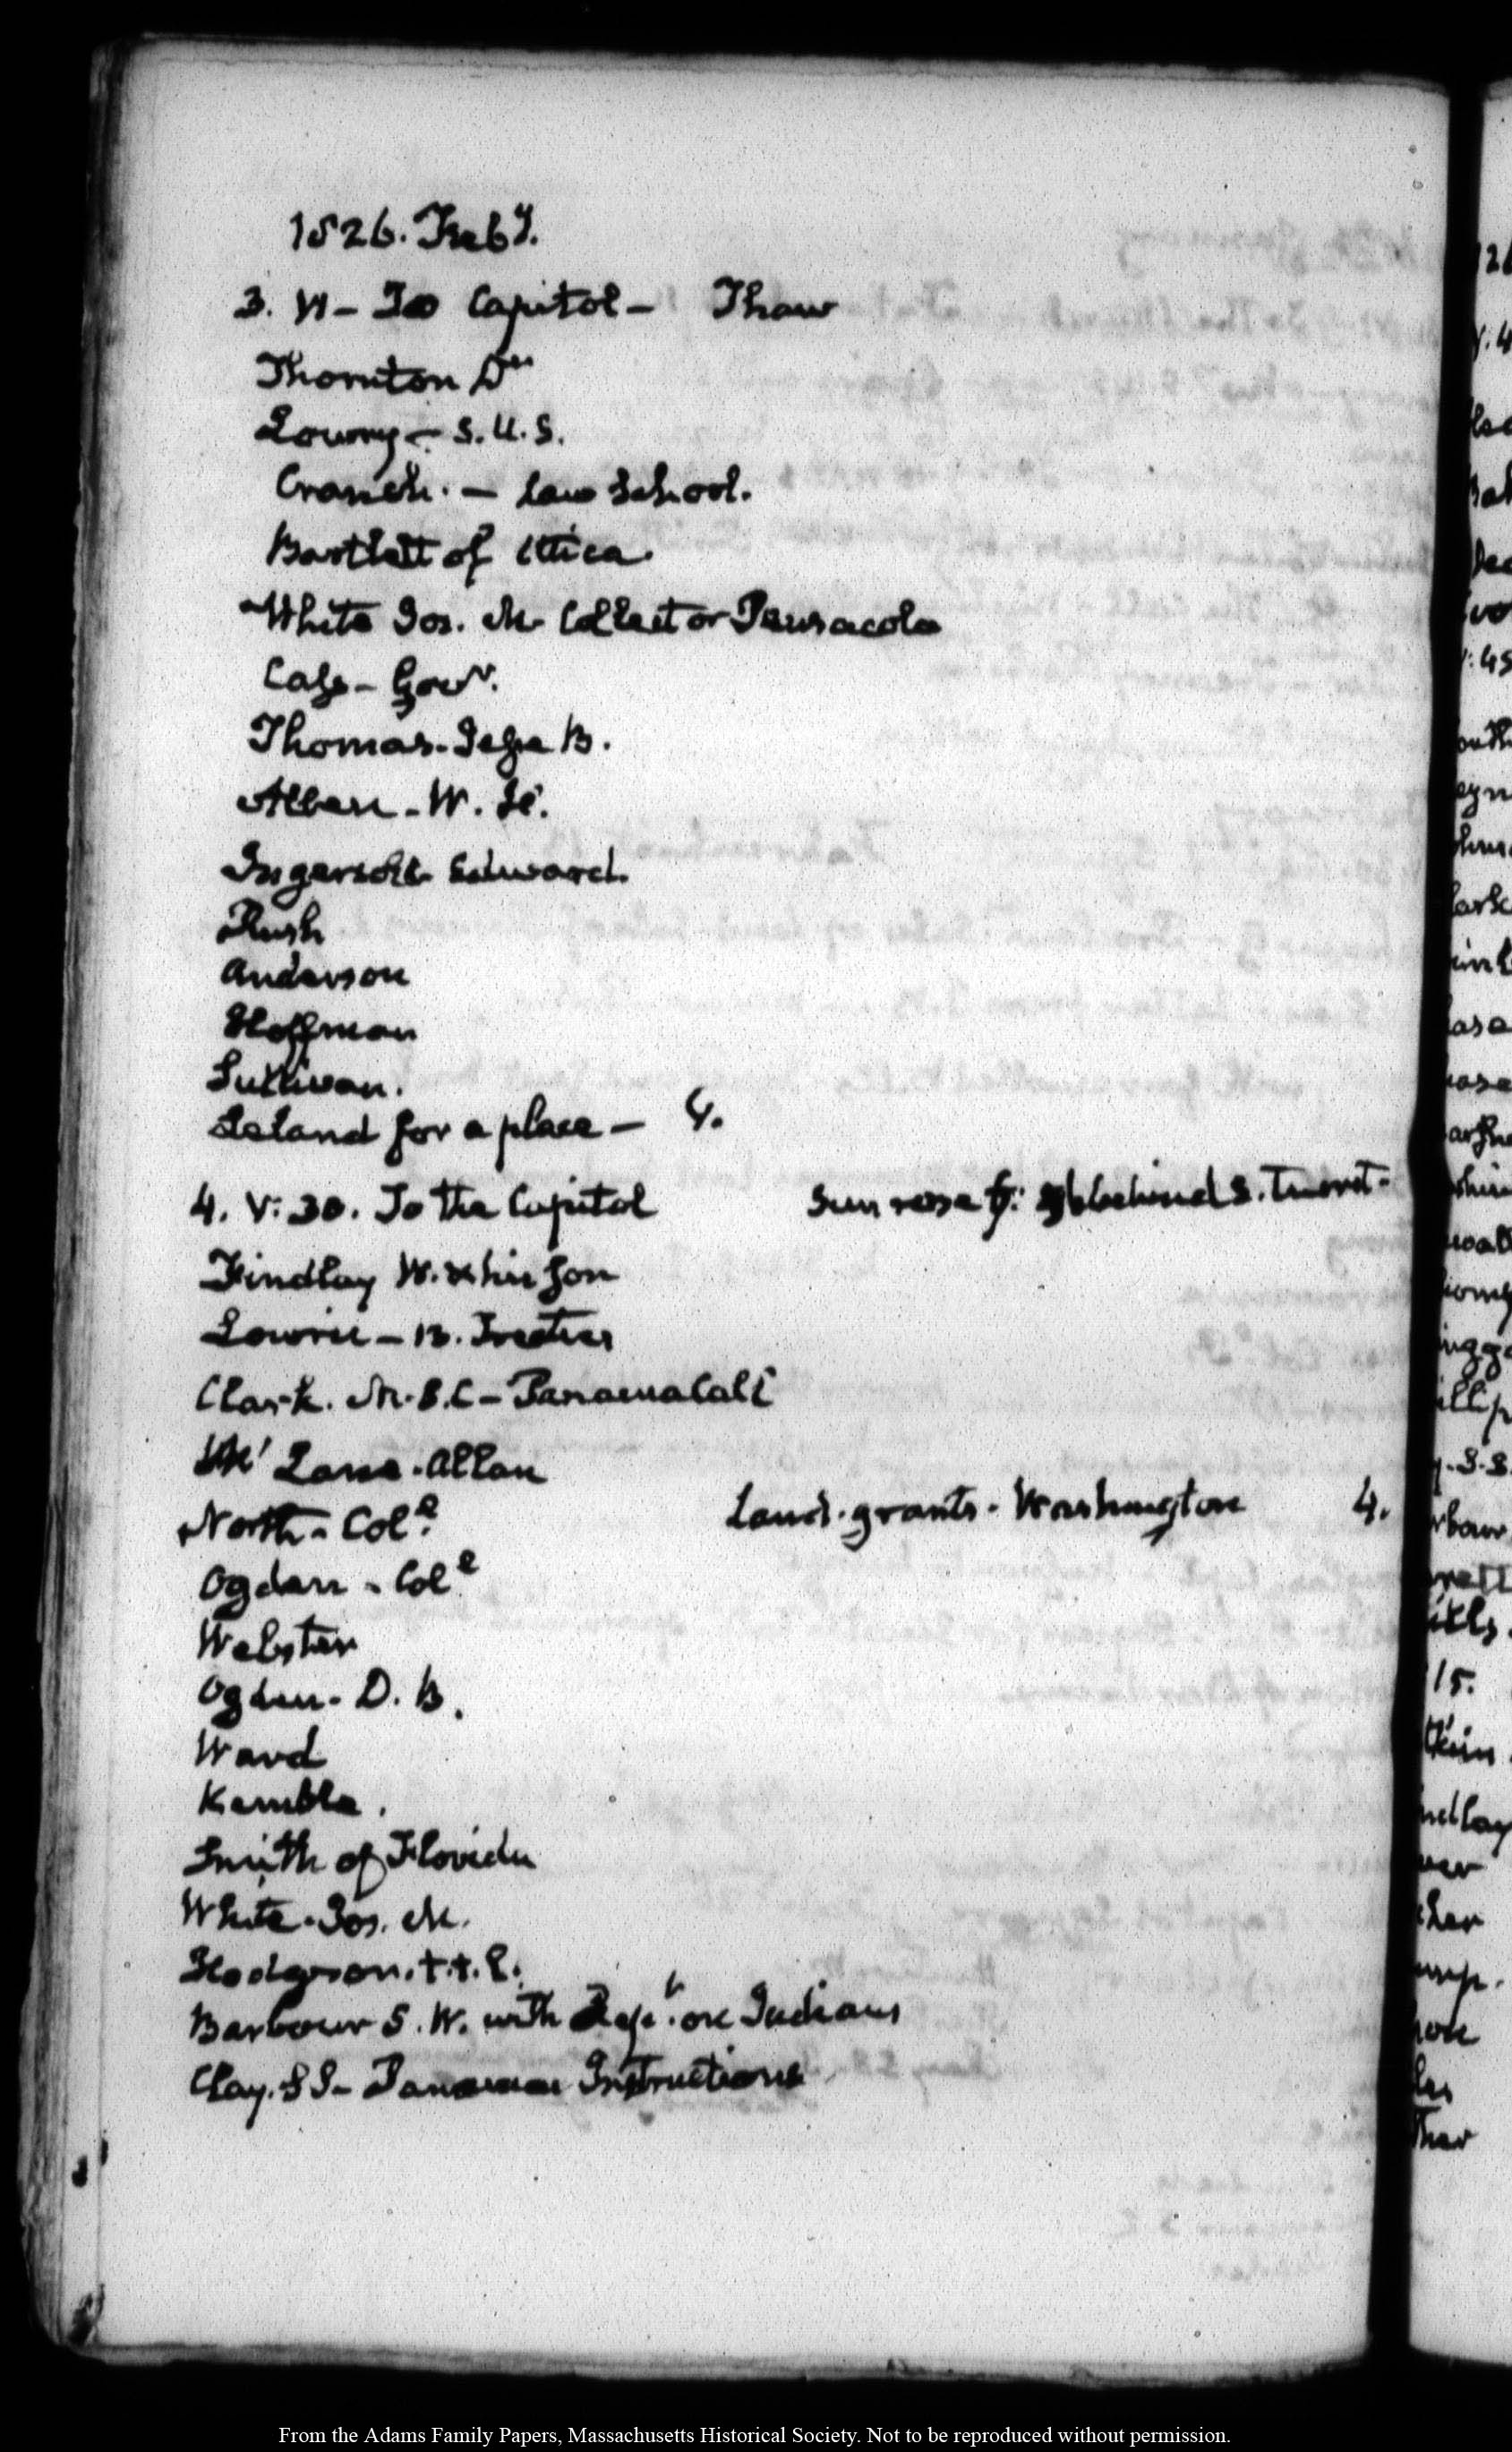 1826. Feb.y
3. VI – To Capitol – Thaw
Thornton Dr.
Lowry – S.U.S.
Cranch. – Law School.
Bartlett of Utica.
White Jos. M. Collector Pensacola
Cass – Govr.
Thomas. Jesse B.
Allen – W. H.
Ingersoll Edward.
Rush
Anderson
Hoffman
Sullivan.
Leland for a place – 4.
4. V: 30. To the Capitol
Sun rose behind S. Turret.
Findlay W. & his Son
Lowrie – B.
Clark. M. B. C – Panama Call
McLane. Allan
North – Coll.
Land. grants. Washington 4.
Ogden – Coll.
Webster
Ogden – D. B.
Ward
Kemble.
Smith of Florida
White. Jos. M.
Hodgson. t.t.l.
Barbour S. W. with Rept. on Indians
Clay. S S – Panama Instructions
From the Adams Family Papers, Massachusetts Historical Society. Not to be reproduced without permission.